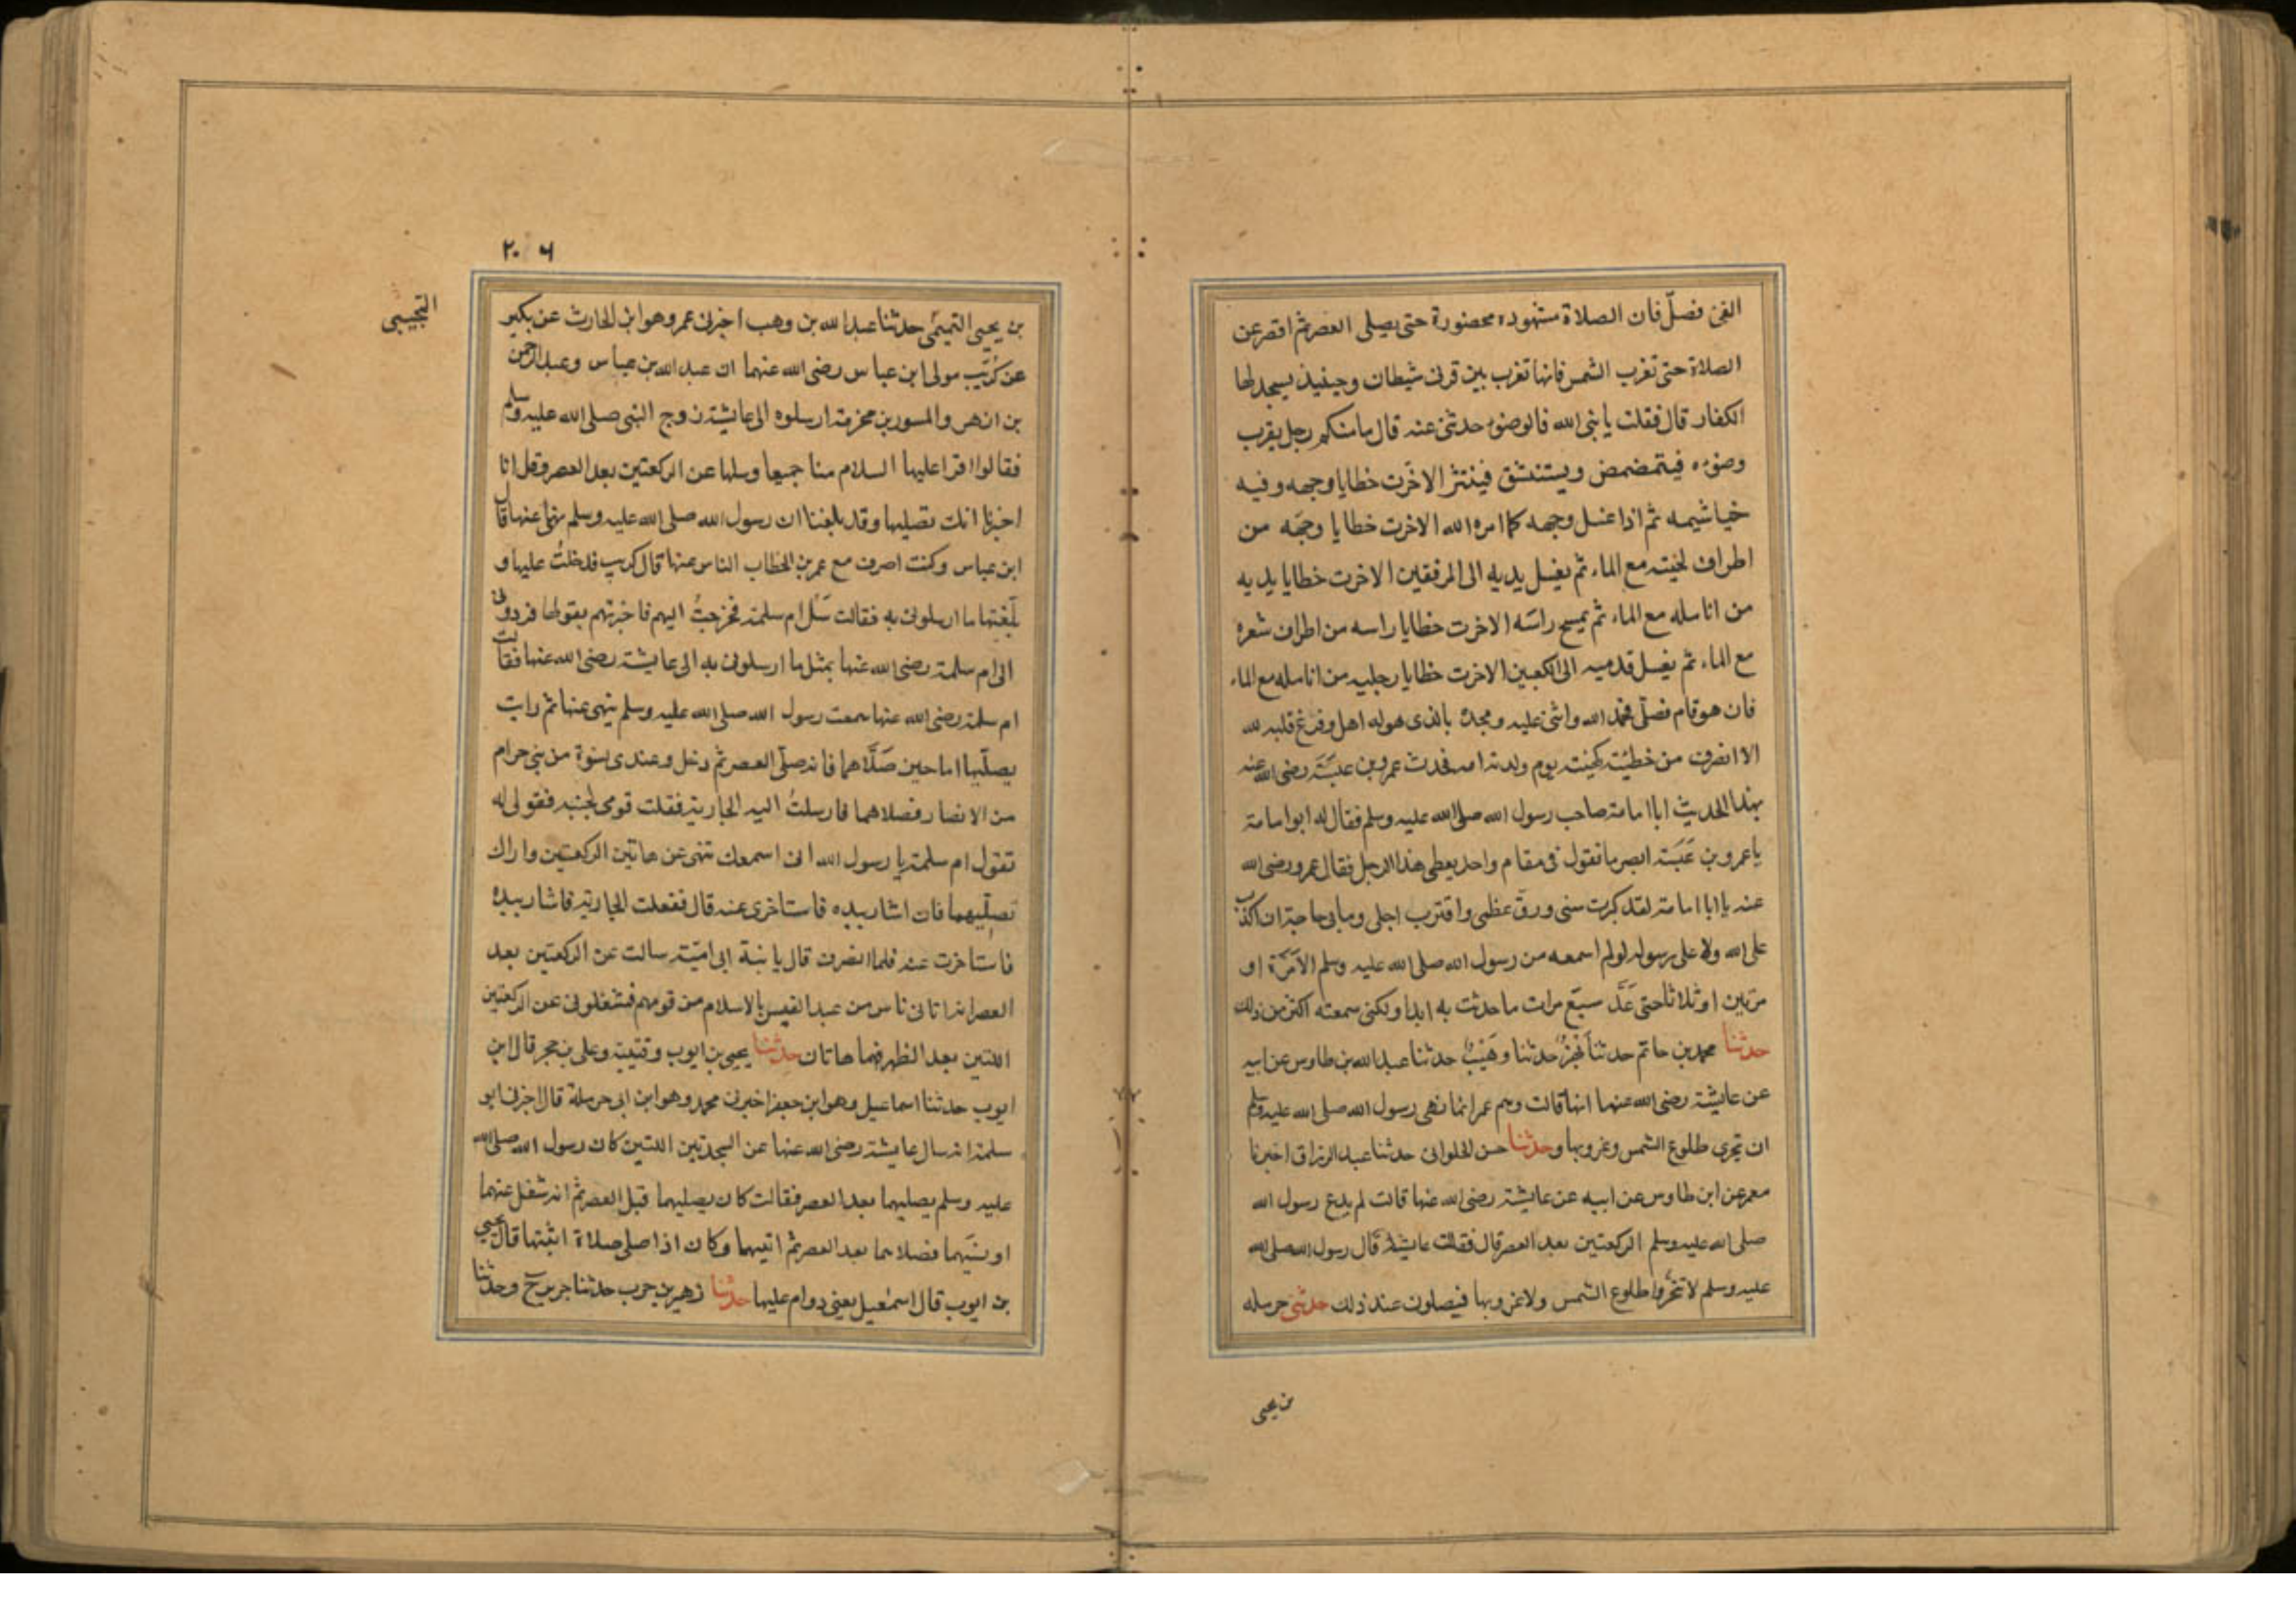 الفئ فصلّ فان الصلاة مشهوده محضورة حتى يصلى العصر ثم اقصر عن
الصلاة حتى تغرب الشمس فانها تغرب بين قرنى شيطان وحينيذ يسجد لها
الكفار قال فقلت يا نبى الله فالوضوء حدثنى عنه قال ما منكم رجل يقرب
وضوءه فيتمضمض ويستنشق فينتثر الا خرّت خطايا وجهه وفيه
خياشيمه ثم اذا غسل وجهه كما امره الله الا خرت خطايا وجهه من
اطراف لحيته مع الماء ثم يغسل يديه الى المرفقين الا خرت خطايا يديه
من انامله مع الماء ثم يمسح راسه الا خرت خطايا راسه من اطراف شعره
مع الماء ثم يغسل قدميه الى الكعبين الا خرت خطايا رجليه من انامله مع الماء
فان هو قام فصلّى فحمد الله واثنى عليه ومجده بالذى هو له اهل وفرغ قلبه لله
الا انصرف من خطيئته كهيئته يوم ولدته امه فحدث عمرو بن عبسة رضى الله عنه
بهذا الحديث ابا امامة صاحب رسول الله صلى الله عليه وسلم فقال له ابو امامة
يا عمرو بن عبسة ابصر ما تقول فى مقام واحد يعطى هذا الرجل فقال عمرو رضى الله
عنه يا ابا امامة لقد كبرت سنى ورقّ عظمى واقترب اجلى وما بى حاجة ان اكذب
على الله ولا على رسوله لو لم اسمعه من رسول الله صلى الله عليه وسلم الا مَرّة او
مرتين او ثلاثا حتى عَدَّ سبع مرات ما حدثت به ابدا ولكنى سمعته اكثر من ذلك
حدثنا محمد بن حاتم حدثنا بَهْزٌ حدثنا وهَيْبٌ حدثنا عبد الله بن طاوس عن ابيه
عن عايشة رضى الله عنها انها قالت وهم عمر انما نهى رسول الله صلى الله عليه وسلم
ان يتحرى طلوع الشمس وغروبها وحدثنا حسن الحلوانى حدثنا عبد الرزاق اخبرنا
معمر عن ابن طاوس عن ابيه عن عايشة رضى الله عنها قالت لم يدع رسول الله
صلى الله عليه وسلم الركعتين بعد العصر قال فقالت عايشة قال رسول الله صلى الله
عليه وسلم لا تتحروا طلوع الشمس ولا غروبها فيصلون عند ذلك حدثنى حرمله
بن يحيى
٢٠٦
بن يحيى التميمى حدثنا عبد الله بن وهب اخبرنى عمرو هو ابن الحارث عن بكير
التجيبى
عن كُرَيْب مولى ابن عباس رضى الله عنهما ان عبد الله بن عباس وعبد الرحمن
بن ازهر والمسور بن مخرمة ارسلوه الى عايشة زوج النبى صلى الله عليه وسلم
فقالوا اقرا عليها السلام منا جميعا وسلها عن الركعتين بعد العصر وقل انا
اخبرنا انك تصليها وقد بلغنا ان رسول الله صلى الله عليه وسلم نهى عنها قال
ابن عباس وكنت اصرف مع عمر بن الخطاب الناس عنها قال كريب فدخلتُ عليها و
بلّغتها ما ارسلونى به فقالت سَل ام سلمة فخرجتُ اليهم فاخبرتهم بقولها فردونى
الى ام سلمة رضى الله عنها بمثل ما ارسلونى به الى عايشة رضى الله عنها فقالت
ام سلمة رضى الله عنها سمعت رسول الله صلى الله عليه وسلم ينهى عنها ثم رايت
يصلّيها اما حين صَلَّاهما فانه صلّى العصر ثم دخل وعندى نسوة من بنى حرام
من الانصار فصلاهما فارسلتُ اليه الجارية فقلت قومى بجنبه فقولى له
تقول ام سلمة يا رسول الله انى اسمعك تنهى عن هاتين الركعتين واراك
تصلّيهما فان اشار بيده فاستاخرى عنه قال ففعلت الجارية فاشار بيده
فاستاخرت عنه فلما انصرف قال يا بنة ابى اميّة سالت عن الركعتين بعد
العصر انه اتانى ناس من عبد القيس بالاسلام من قومهم فشغلونى عن الركعتين
اللتين بعد الظهر فهما هاتان حدثنا يحيى بن ايوب وقتيبة وعلى بن حجر قال ابن
ايوب حدثنا اسماعيل وهو ابن جعفر اخبرنى محمد وهو ابن ابى حرملة قال اخبرنى ابو
سلمة انه سال عايشة رضى الله عنها عن السجدتين اللتين كان رسول الله صلى الله
عليه وسلم يصليهما بعد العصر فقالت كان يصليهما قبل العصر ثم انه شغل عنهما
او نسيهما فصلاهما بعد العصر ثم اثبتهما وكان اذا صلى صلاة اثبتها قال يحيى
بن ايوب قال اسمعيل يعنى دوام عليها حدثنا زهير بن حرب حدثنا جرير ح وحدثنا